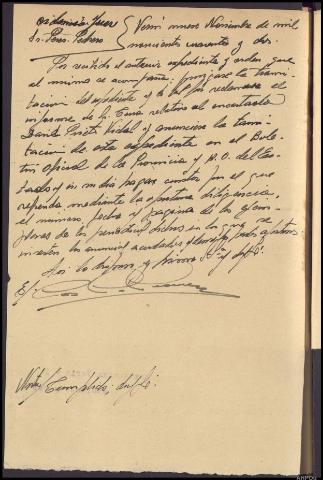 Ordenación Juez
Sr. Perez Pedrero
Veinti nueve Noviembre de mil
novecientos cuarenta y dos.
Por recibido el anterior expediente y orden que
al mismo se acompaña: prosigase la trami-
tación del expediente y a tal fin reclamese el
informe de Sr. Cura relativo al encartado
Vidal y anunciese la trami-
tación de este expediente en el Bole-
tin Oficial de la Provincia y B.O. del Es-
tado y
mediante la oportuna diligencia
el número, fecha y página de los ejem-
plares de los periodicos dichos en los que se
inserten los anuncios acordados
Asi lo dispuso y firma S.Sª y doy fé.
E/
Nota/ Cumplido, doy fé.
AHPOU